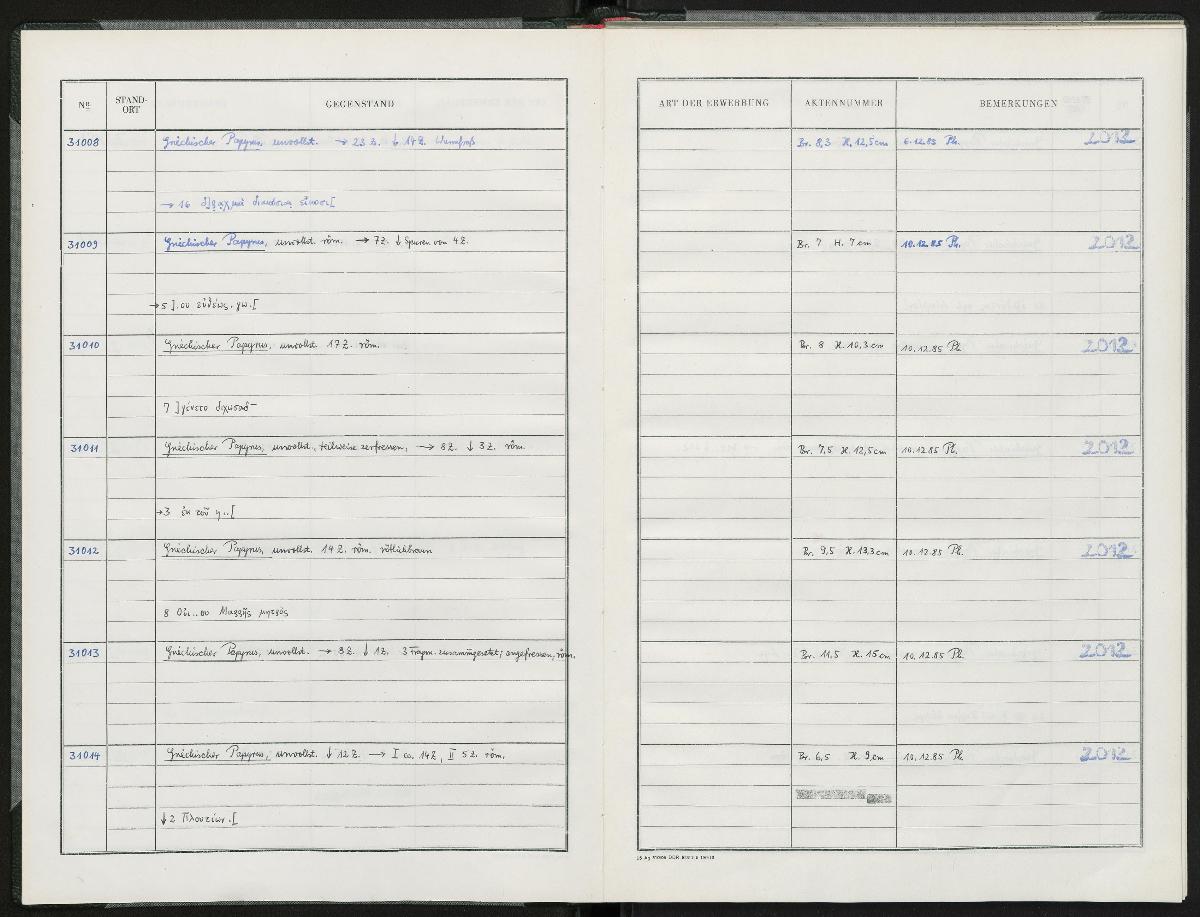 Nº STAND-ORT GEGENSTAND ART DER ERWERBUNG AKTENNUMMER BEMERKUNGEN
31008 Griechischer Papyrus, unvollst. → 23 Z. ↓ 14 Z. Wurmfraß Br. 8,3 H. 12,5 cm 6.12.85 Ph. 2012
→ 16 διακόσιαι εἴκοσι[
31009 Griechischer Papyrus, unvollst. röm. → 7 Z. ↓ Spuren von 4 Z. Br. 7 H. 7 cm 10.12.85 Ph. 2012
→ 5 ]. ου εὐθέως . γω.[
31010 Griechischer Papyrus, unvollst. 17 Z. röm. Br. 8 H. 10,3 cm 10.12.85 Ph. 2012
7 ]γένετο
31011 Griechischer Papyrus, unvollst., teilweise zerfressen, → 8 Z. ↓ 3 Z. röm. Br. 7,5 H. 12,5 cm 10.12.85 Ph. 2012
→ 3 ἐκ τοῦ η..[
31012 Griechischer Papyrus, unvollst. 14 Z. röm. rötlichbraun Br. 9,5 H. 13,3 cm 10.12.85 Ph. 2012
8 Οὐι..ου Μαρρῆς μητρός
31013 Griechischer Papyrus, unvollst. → 3 Z. ↓ 1 Z. 3 Fragm. zusammengesetzt; angefressen, röm. Br. 11,5 H. 15 cm 10.12.85 Ph. 2012
31014 Griechischer Papyrus, unvollst. ↓ 12 Z. → I ca. 14 Z, II 5 Z. röm. Br. 6,5 H. 9 cm 10.12.85 Ph. 2012
↓ 2 Πλουτίων.[